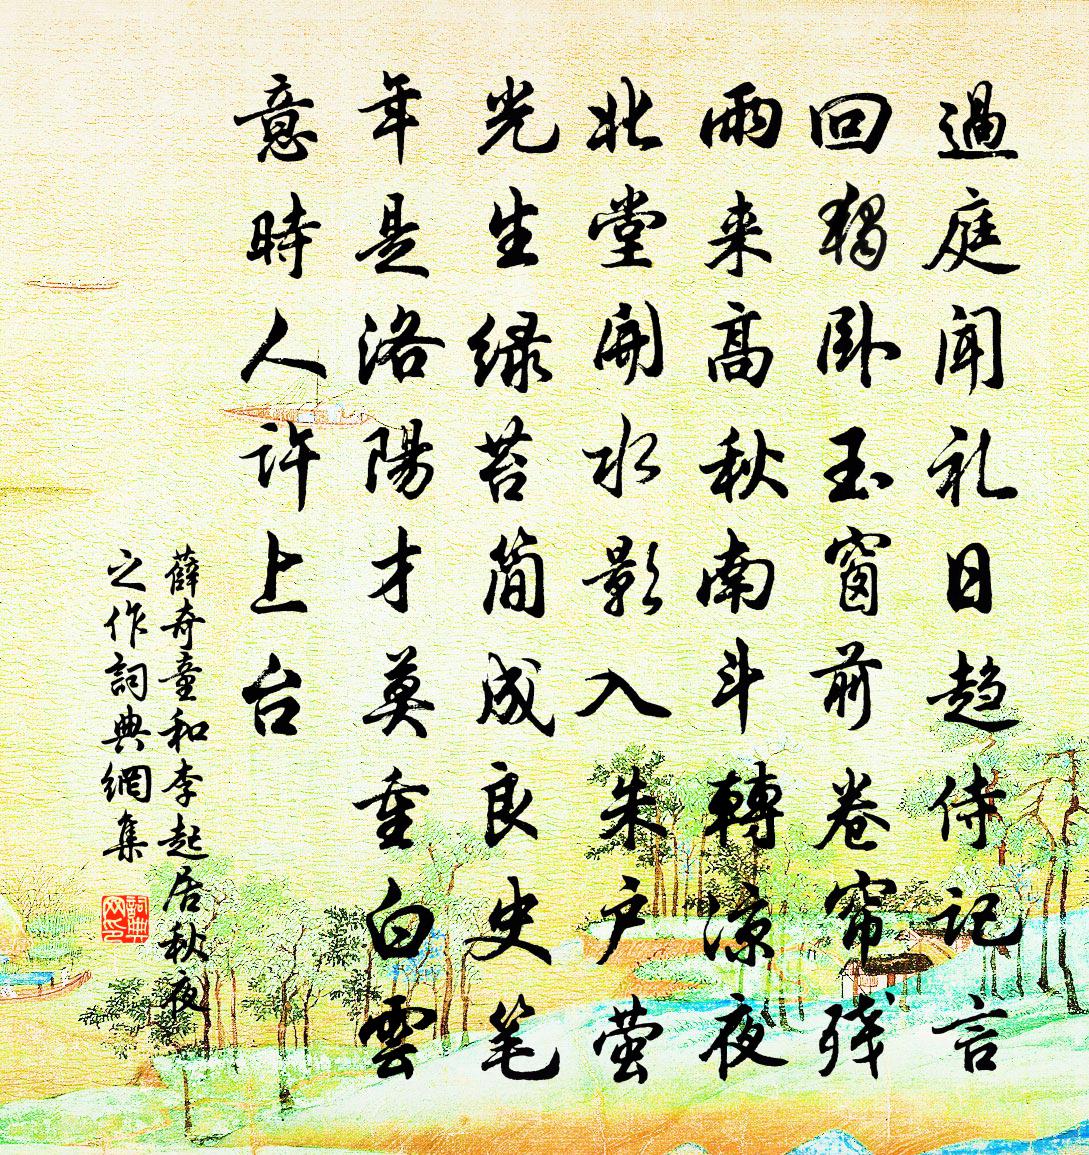 過庭闻礼日趋侍记言
回独卧玉窗前卷帘残
雨来高秋南斗轉凉夜
北堂開水影入朱户萤
光生绿苔简成良史笔
年是洛陽才莫重白雲
意時人许上台
薛奇童和李起居秋夜
之作詞典網集
詞典